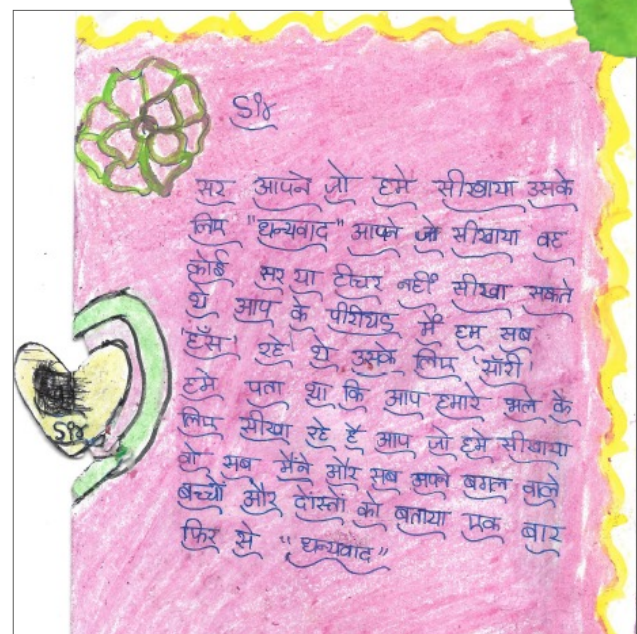 Sir
सर आपने जो हमे सीखाया उसके
लिए "धन्यवाद" आपने जो सीखाया वह
कोई सर या टीचर नहीं सीखा सकते
थे आप के पीरीयड में हम सब
'हँस' रहे थे उसके लिए 'सॉरी'
हमे पता था कि आप हमारे भले के
लिए सीखा रहे है आप जो हमे सीखाया
वो सब मैंने और सब अपने बगल वाले
बच्चों और दोस्तों को बताया एक बार
फिर से "धन्यवाद"
Sir